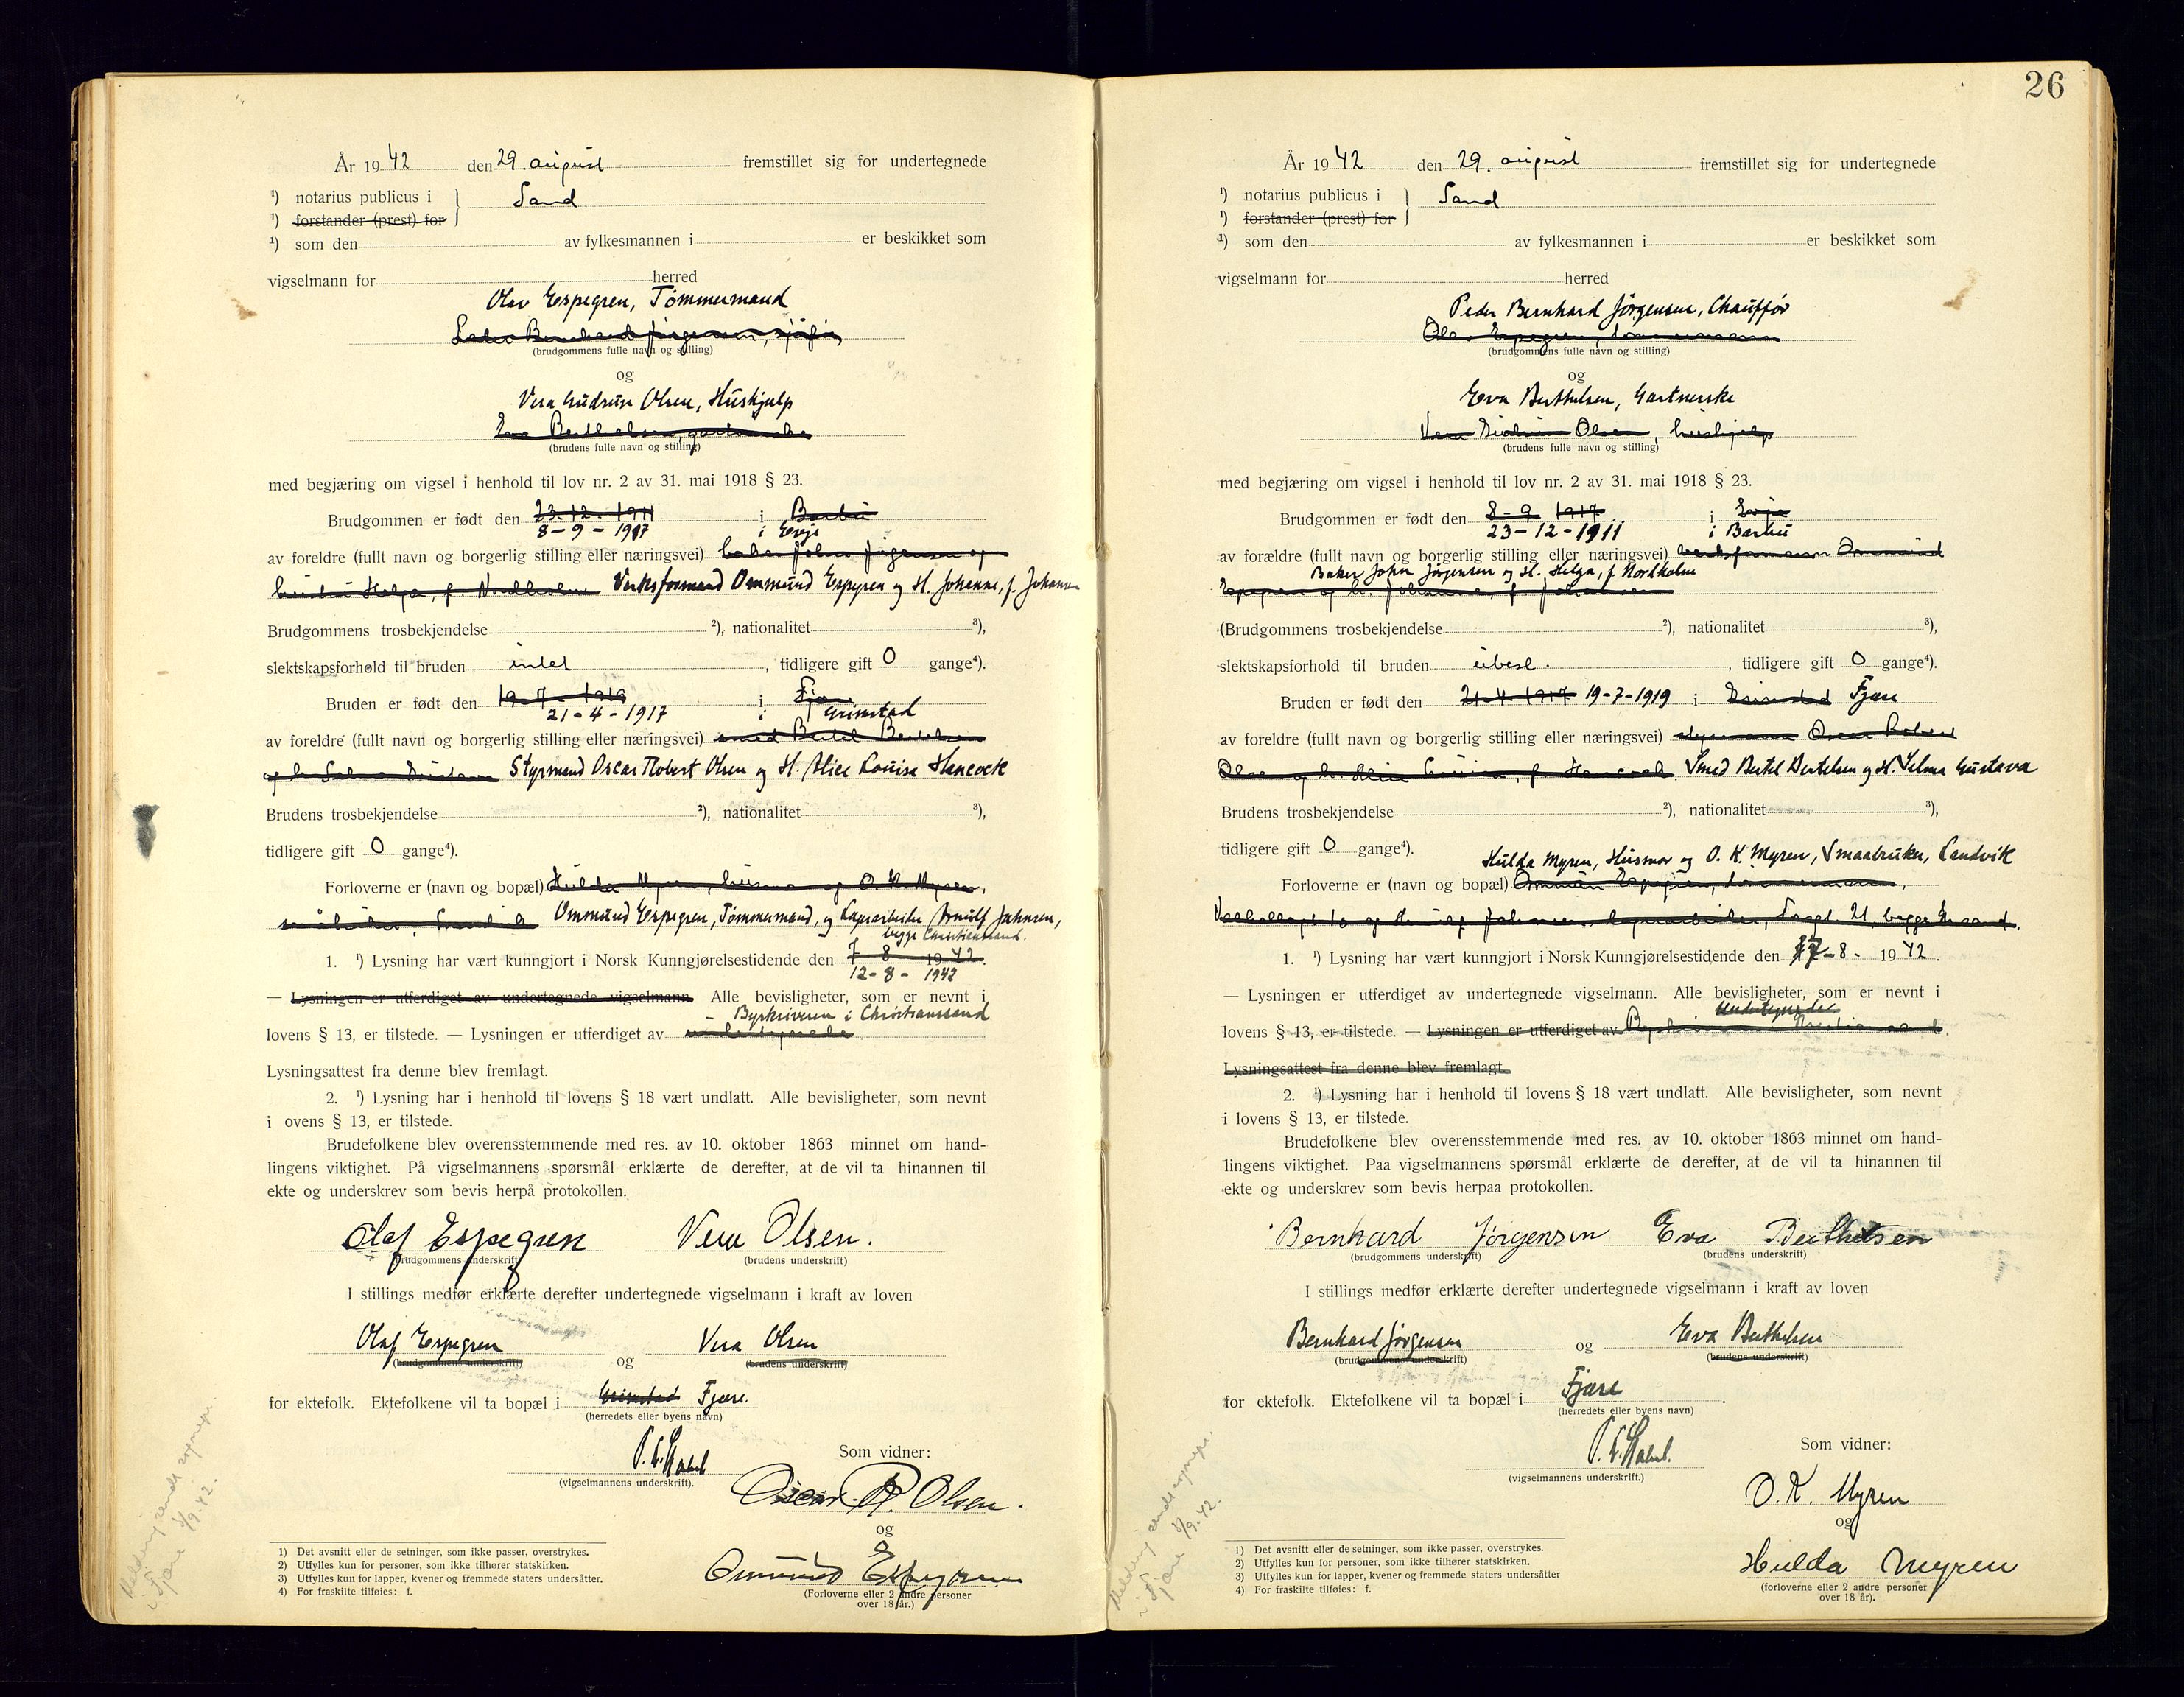 År 1942 den 29. august fremstillet sig for undertegnede
¹) notarius publicus i Sand
¹) forstander (prest) for
¹) som den av fylkesmannen i er beskikket som
vigselmann for herred
Olav Espegren, Tömmermand
Peder Bernhard Jørgensen, sjåfør
(brudgommens fulle navn og stilling)
og
Vera Gudrun Olsen, Huskjelp
Eva Berthelsen, gartnerske
(brudens fulle navn og stilling)
med begjæring om vigsel i henhold til lov nr. 2 av 31. mai 1918 § 23.
Brudgommen er født den 23-12-1911 i Barbu
8-9-1917 i Evje
av foreldre (fullt navn og borgerlig stilling eller næringsvei) baker John Jørgensen og
hustru Helga, f. Nordholm Verksformand Ommund Espegren og H. Johanne, f. Johansen
Brudgommens trosbekjendelse ²), nationalitet ³),
slektskapsforhold til bruden intet, tidligere gift 0 gange⁴).
Bruden er født den 19-7-1919 i Fjære
21-4-1917 i Grimstad
av foreldre (fullt navn og borgerlig stilling eller næringsvei) smed Bertel Bertelsen
og h. Selma Gustava Styrmand Oscar Robert Olsen og H. Alice Louise Hancock
Brudens trosbekjendelse ²), nationalitet ³),
tidligere gift 0 gange⁴).
Forloverne er (navn og bopæl) Hulda Myren, husmor og O. K. Myren,
småbruker, Landvik Ommund Espegren, Tömmermand, og Lagerarbeider Arnulf Johnsen,
begge Christianssand.
1. ¹) Lysning har vært kunngjort i Norsk Kunngjørelsestidende den 7-8 1942.
12-8-1942
— Lysningen er utferdiget av undertegnede vigselmann. Alle bevisligheter, som er nevnt i
- Byskriveren i Christianssand
lovens § 13, er tilstede. — Lysningen er utferdiget av undertegnede
Lysningsattest fra denne blev fremlagt.
2. ¹) Lysning har i henhold til lovens § 18 vært undlatt. Alle bevisligheter, som nevnt
i ovens § 13, er tilstede.
Brudefolkene blev overensstemmende med res. av 10. oktober 1863 minnet om hand-
lingens viktighet. På vigselmannens spørsmål erklærte de derefter, at de vil ta hinannen til
ekte og underskrev som bevis herpå protokollen.
Olaf Espegren Vera Olsen.
(brudgommens underskrift) (brudens underskrift)
I stillings medfør erklærte derefter undertegnede vigselmann i kraft av loven
Olaf Espegren og Vera Olsen
(brudgommens underskrift) (brudens underskrift)
for ektefolk. Ektefolkene vil ta bopæl i Grimstad Fjære.
(herredets eller byens navn)
(vigselmannens underskrift).
Som vidner:
Oscar R. Olsen.
og
Ommund Espegren
(Forloverne eller 2 andre personer
over 18 år.)
Melding sendt sognepr.
i Fjære 3/9-42.
1) Det avsnitt eller de setninger, som ikke passer, overstrykes.
2) Utfylles kun for personer, som ikke tilhører statskirken.
3) Utfylles kun for lapper, kvener og fremmede staters undersåtter.
4) For fraskilte tilføies: f.
26
År 1942 den 29. august fremstillet sig for undertegnede
¹) notarius publicus i Sand
¹) forstander (prest) for
¹) som den av fylkesmannen i er beskikket som
vigselmann for herred
Peder Bernhard Jørgensen, Chauffør
Olav Espegren, tømmermann
(brudgommens fulle navn og stilling)
og
Eva Berthelsen, Gartnerske
Vera Gudrun Olsen, hushjelp
(brudens fulle navn og stilling)
med begjæring om vigsel i henhold til lov nr. 2 av 31. mai 1918 § 23.
Brudgommen er født den 8-9 1917 i Evje
23-12-1911 i Barbu
av forældre (fullt navn og borgerlig stilling eller næringsvei) verksformann Ommund
Baker John Jørgensen og H. Helga, f. Nordholm
Espegren og h. Johanne, f. Johansen
(Brudgommens trosbekjendelse ²), nationalitet ³),
slektskapsforhold til bruden ubesl., tidligere gift 0 gange⁴).
Bruden er født den 21-4-1917 19-7-1919 i Grimstad Fjære
av foreldre (fullt navn og borgerlig stilling eller næringsvei) styrmann Oscar Robert
Olsen og h. Alice Louise, f. Hancock Smed Bertel Bertelsen og H. Selma Gustava
Brudens trosbekjendelse ²), nationalitet ³),
tidligere gift 0 gange⁴).
Hulda Myren, Husmor og O. K. Myren, Smaabruker, Landvik
Forloverne er (navn og bopæl) Ommund Espegren, tømmermann,
og Arnulf Johnsen, lagerarbeider, 21, begge Kr.sand.
1. ¹) Lysning har vært kunngjort i Norsk Kunngjørelsestidende den -8-1942.
— Lysningen er utferdiget av undertegnede vigselmann. Alle bevisligheter, som er nevnt i
Undertegnede
lovens § 13, er tilstede. — Lysningen er utferdiget av Byskriveren Kristiansand.
Lysningsattest fra denne blev fremlagt.
2. ¹) Lysning har i henhold til lovens § 18 vært undlatt. Alle bevisligheter, som nevnt
i lovens § 13, er tilstede.
Brudefolkene blev overensstemmende med res. av 10. oktober 1863 minnet om hand-
lingens viktighet. Paa vigselmannens spørsmål erklærte de derefter, at de vil ta hinannen til
ekte og underskrev som bevis herpaa protokollen.
Bernhard Jørgensen Eva Berthelsen
(brudgommens underskrift) (brudens underskrift)
I stillings medfør erklærte derefter undertegnede vigselmann i kraft av loven
Bernhard Jørgensen og Eva Berthelsen
(brudgommens underskrift) (brudens underskrift)
for ektefolk. Ektefolkene vil ta bopæl i Fjære.
(herredets eller byens navn)
(vigselmannens underskrift.)
Som vidner:
O. K. Myren
og
Hulda Myren
(forloverne eller 2 andre personer
over 18 år).
Melding sendt sognepr.
i Fjære 3/9-42.
1) Det avsnitt eller de setninger, som ikke passer, overstrykes.
2) Utfylles kun for personer, som ikke tilhører statskirken.
3) Utfylles kun for lapper, kvener og fremmede staters undersåtter
4) For fraskilte tilføies: f.